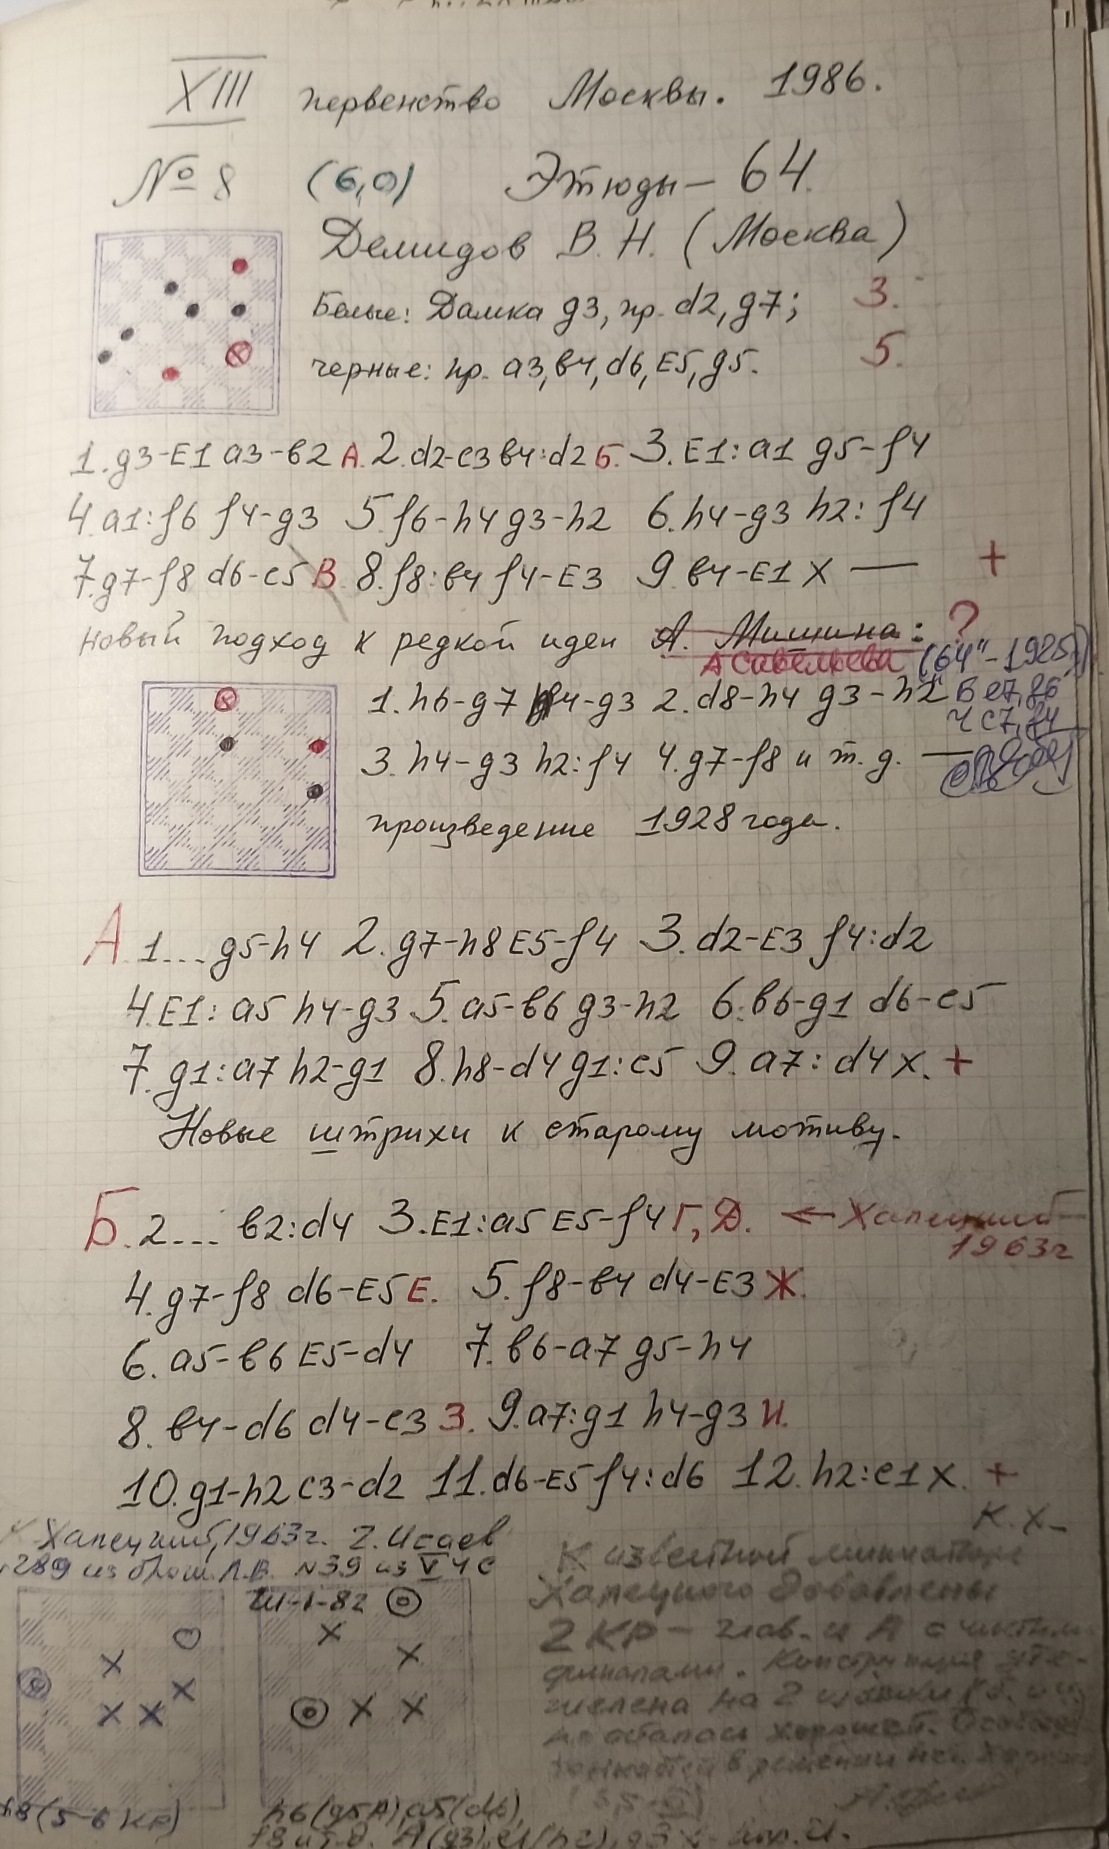 XIII первенство Москвы. 1986.
№ 8 (6,0) Этюды – 64.
Демидов В. Н. (Москва)
Белые: Дамка g3, пр. d2, g7; 3.
черные: пр. a3, в4, d6, E5, g5. 5.
1. g3-E1 a3-в2 А. 2. d2-c3 в4:d2 Б. 3. E1:a1 g5-f4
4. a1:f6 f4-g3 5. f6-h4 g3-h2 6. h4-g3 h2:f4
7. g7-f8 d6-c5 В. 8. f8:в4 f4-E3 9. в4-E1 X — +
Новый подход к редкой идеи А. Мишина: ?
А Савельева ("64"-1925)
1. h6-g7 f4-g3 2. d8-h4 g3-h2 Б e7, f6
Ч c7, f4
3. h4-g3 h2:f4 4. g7-f8 и т. д. —
произведение 1928 года.
А. 1... g5-h4 2. g7-h8 E5-f4 3. d2-E3 f4:d2
4. E1:a5 h4-g3 5. a5-в6 g3-h2 6. в6-g1 d6-c5
7. g1:a7 h2-g1 8. h8-d4 g1:c5 9. a7:d4 X. +
Новые штрихи к старому мотиву.
Б. 2... в2:d4 3. E1:a5 E5-f4 Г, Д. ← Хапецкий
1963г
4. g7-f8 d6-E5 Е. 5. f8-в4 d4-E3 Ж.
6. a5-в6 E5-d4 7. в6-a7 g5-h4
8. в4-d6 d4-c3 З. 9. a7:g1 h4-g3 И.
10. g1-h2 c3-d2 11. d6-E5 f4:d6 12. h2:c1 X. +
К. Х-
Хапецкий, 1963г. 2. Исаев
289 из брош. Л.В. №39 из V ЧС
Ш-1-82
К известной миниатюре
Хапецкого добавлены
2 КР – глав. и А с чистыми
финалами. Конструкция
на 2
осталась хорошей.
в решении нет.
h8 (5-6 КР)
h6 (g5 A), a5 (d6),